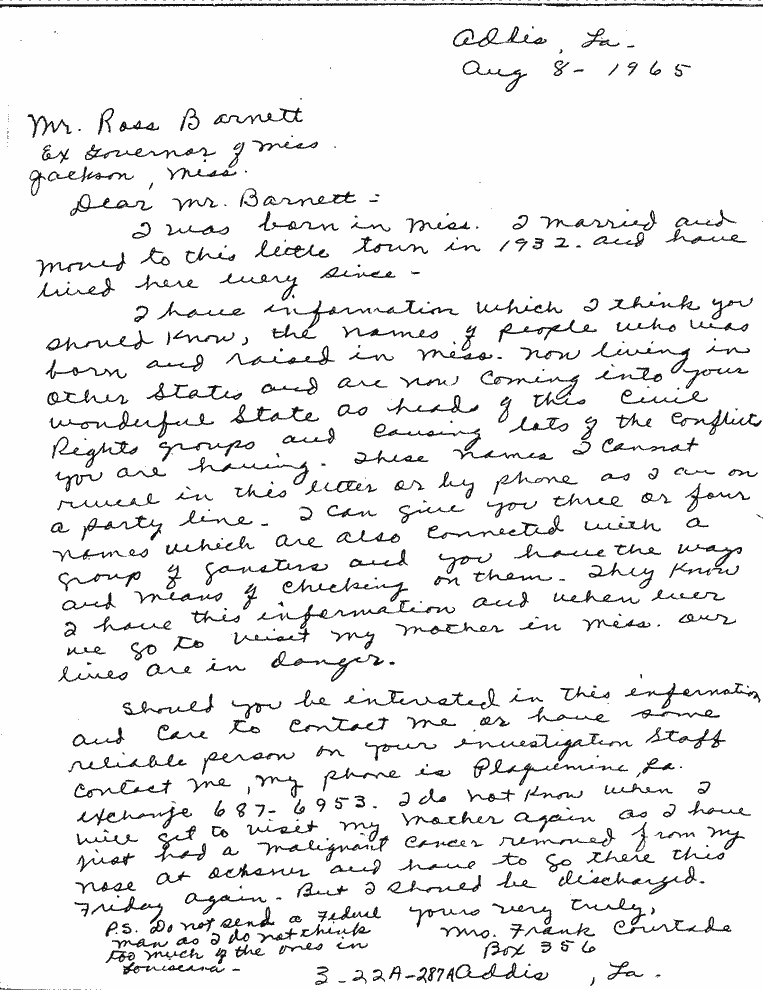 Addis, La.
Aug 8-1965
Mr. Ross Barnett
Ex Governor of Miss.
Jackson, Miss.
Dear Mr. Barnett-
I was born in Miss. I married and
moved to this little town in 1932. and have
lived here every since-
I have information which I think you
should know, the names of people who was
born and raised in Miss. now living in
other States and are now coming into your
wonderful State as heads of this Civil
Rights groups and causing lots of the conflicts
you are having. These names I cannot
reveal in this letter or by phone as I am on
a party line. I can give you three or four
names which are also connected with a
group of gansters and you have the ways
and means of checking on them. They know
I have this information and when ever
we go to visit my mother in Miss. our
lives are in danger.
Should you be interested in this information
and care to contact me or have some
reliable person on your investigation Staff
contact me, my phone is Plaquemine, La.
exchange 687-6953. I do not know when I
will get to visit my mother again as I have
just had a malignant cancer removed from my
nose at Ochsner and have to go there this
Friday again. But I should be discharged.
Yours very truly,
Mrs. Frank Courtade
Box 356
Addis, La.
P.S. Do not send a Federal
man as I do not think
too much of the ones in
Louisiana-
3-22A-287A